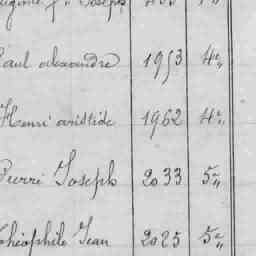 Eugène f. d. Joseph
Paul alexandre 1953 4e "
Henri aristide 1962 4e "
Pierre Joseph 2033 5e "
Théophile Jean 2025 5e "